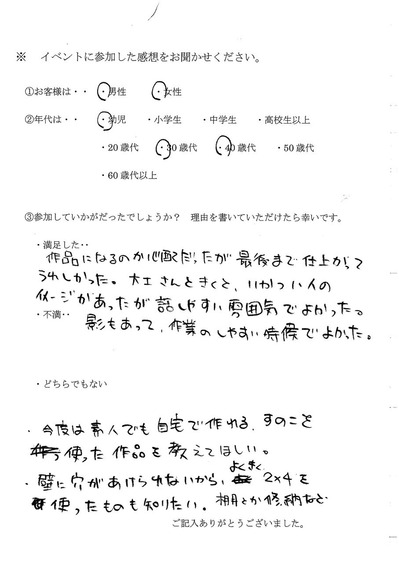 ※　イベントに参加した感想をお聞かせください。
①お客様は・・　・男性　・女性
②年代は・・　・幼児　・小学生　・中学生　・高校生以上
・20歳代　・30歳代　・40歳代　・50歳代
・60歳代以上
③参加していかがだったでしょうか？　理由を書いていただけたら幸いです。
・満足した・・
作品になるのか心配だったが最後まで仕上がって
うれしかった。大工さんときくと、いかつい人の
イメージがあったが話しやすい雰囲気でよかった。
・不満・・
影もあって、作業のしやすい時候でよかった。
・どちらでもない
・今度は素人でも自宅で作れる、すのこを
使った作品を教えてほしい。
・壁に穴があけられないから、よくきく 2x4を
使ったものも知りたい。棚とか修納など
ご記入ありがとうございました。